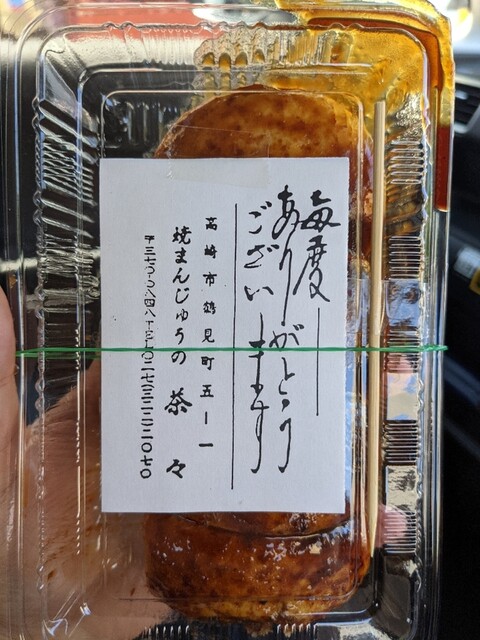 毎度
ありがとう
ございます
高崎市鶴見町五ー一
焼まんじゅうの 茶々
〒三七〇-〇八四八 TEL〇二七(三二二)二〇七〇